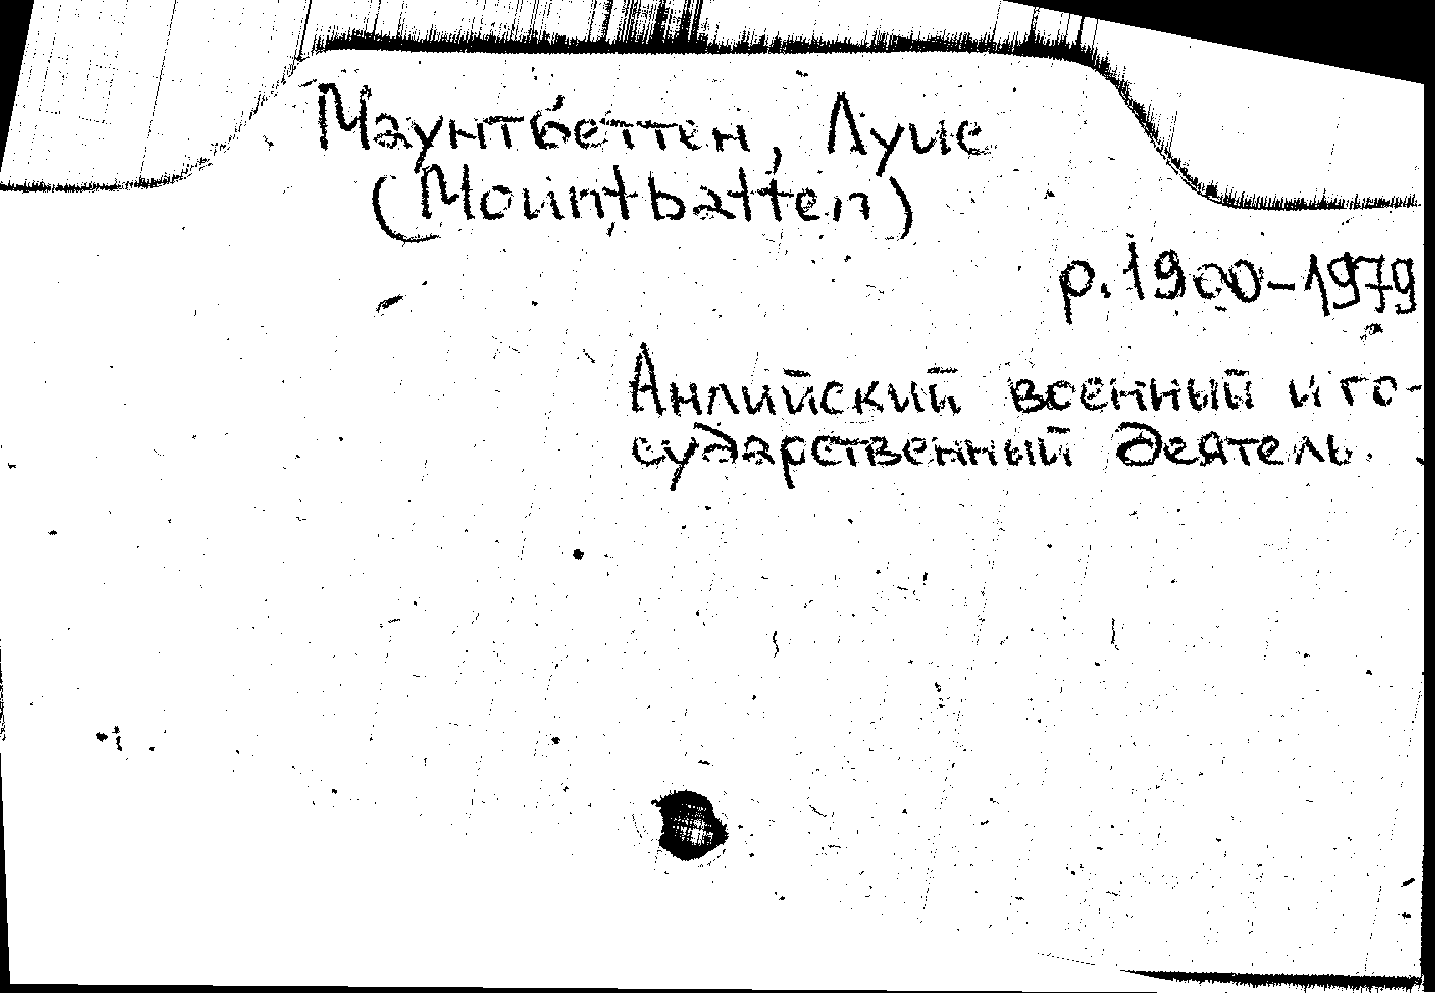 Маунтбеттен, Луис
(Mountbatten)
р. 1900-1979
Английский военный и го-
сударственный деятель.